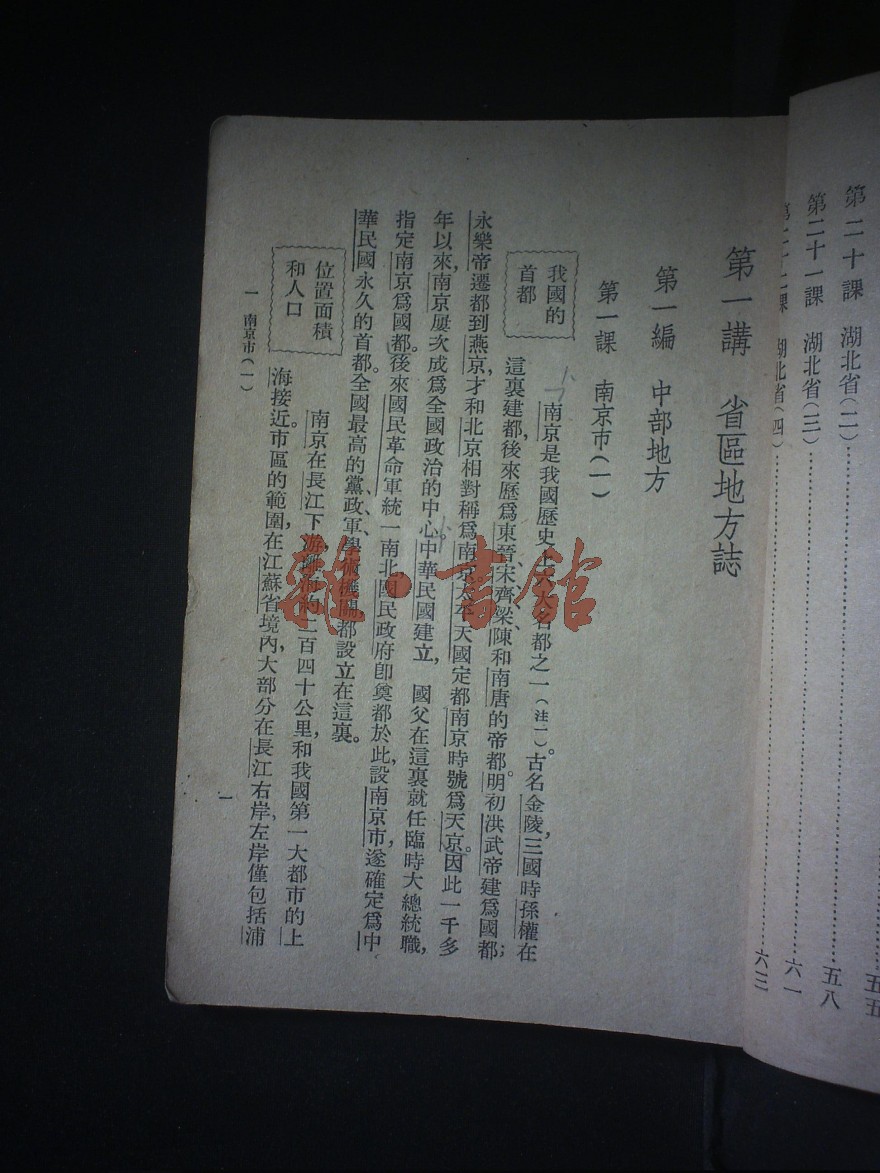 第二十課　湖北省(二)……五五
第二十一課　湖北省(三)……五八
第二十二課　湖北省(四)……六一
六三
第一講　省區地方誌
第一編　中部地方
第一課　南京市(一)
我國的首都
南京是我國歷史上六大名都之一(注一)。古名金陵，三國時孫權在
這裏建都，後來歷爲東晉、宋、齊、梁、陳和南唐的帝都。明初洪武帝建爲國都；
永樂帝遷都到燕京，才和北京相對稱爲南京。太平天國定都南京時號爲天京。因此一千多
年以來，南京屢次成爲全國政治的中心。中華民國建立，　國父在這裏就任臨時大總統職，
指定南京爲國都。後來國民革命軍統一南北，國民政府卽奠都於此，設南京市，遂確定爲中
華民國永久的首都。全國最高的黨、政、軍、學術機關，都設立在這裏。
位置面積和人口
南京在長江下游，離海約二百四十公里，和我國第一大都市的上
海接近。市區的範圍，在江蘇省境內，大部分在長江右岸，左岸僅包括浦
一　南京市(一)
一
雜·書館